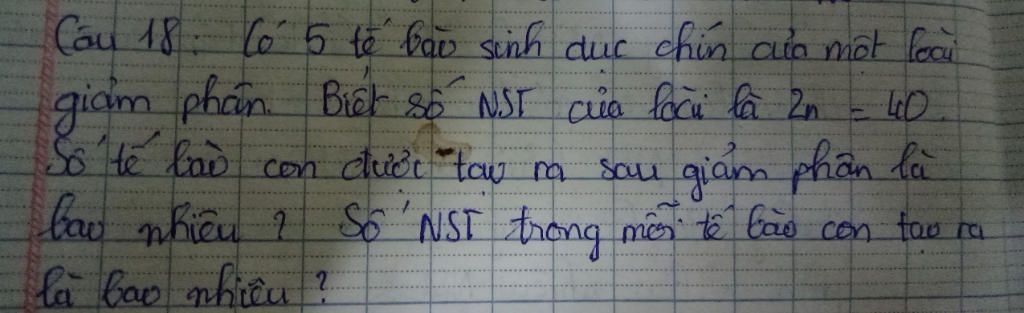 Câu 18: Có 5 tế bào sinh dục chín của một loài
giảm phân. Biết số NST của loài là 2n = 40.
Số tế bào con được tạo ra sau giảm phân là
bao nhiêu? Số NST trong mỗi tế bào con tạo ra
là bao nhiêu?